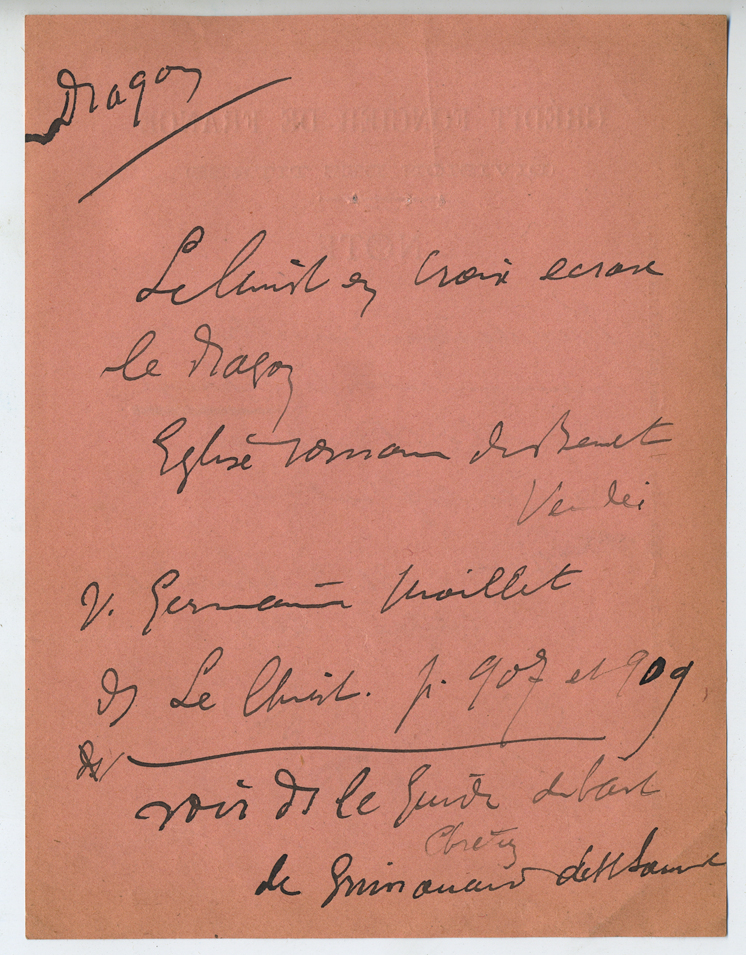 Dragon
Le Christ en Croix ecrase
le dragon
Eglise romane de Benet
Vendée
V. Germaine Maillet
ds Le Christ. p. 907 et 909
ds
voir ds le Guide de l'art
Chrétien
de Grimouard de St Laurent